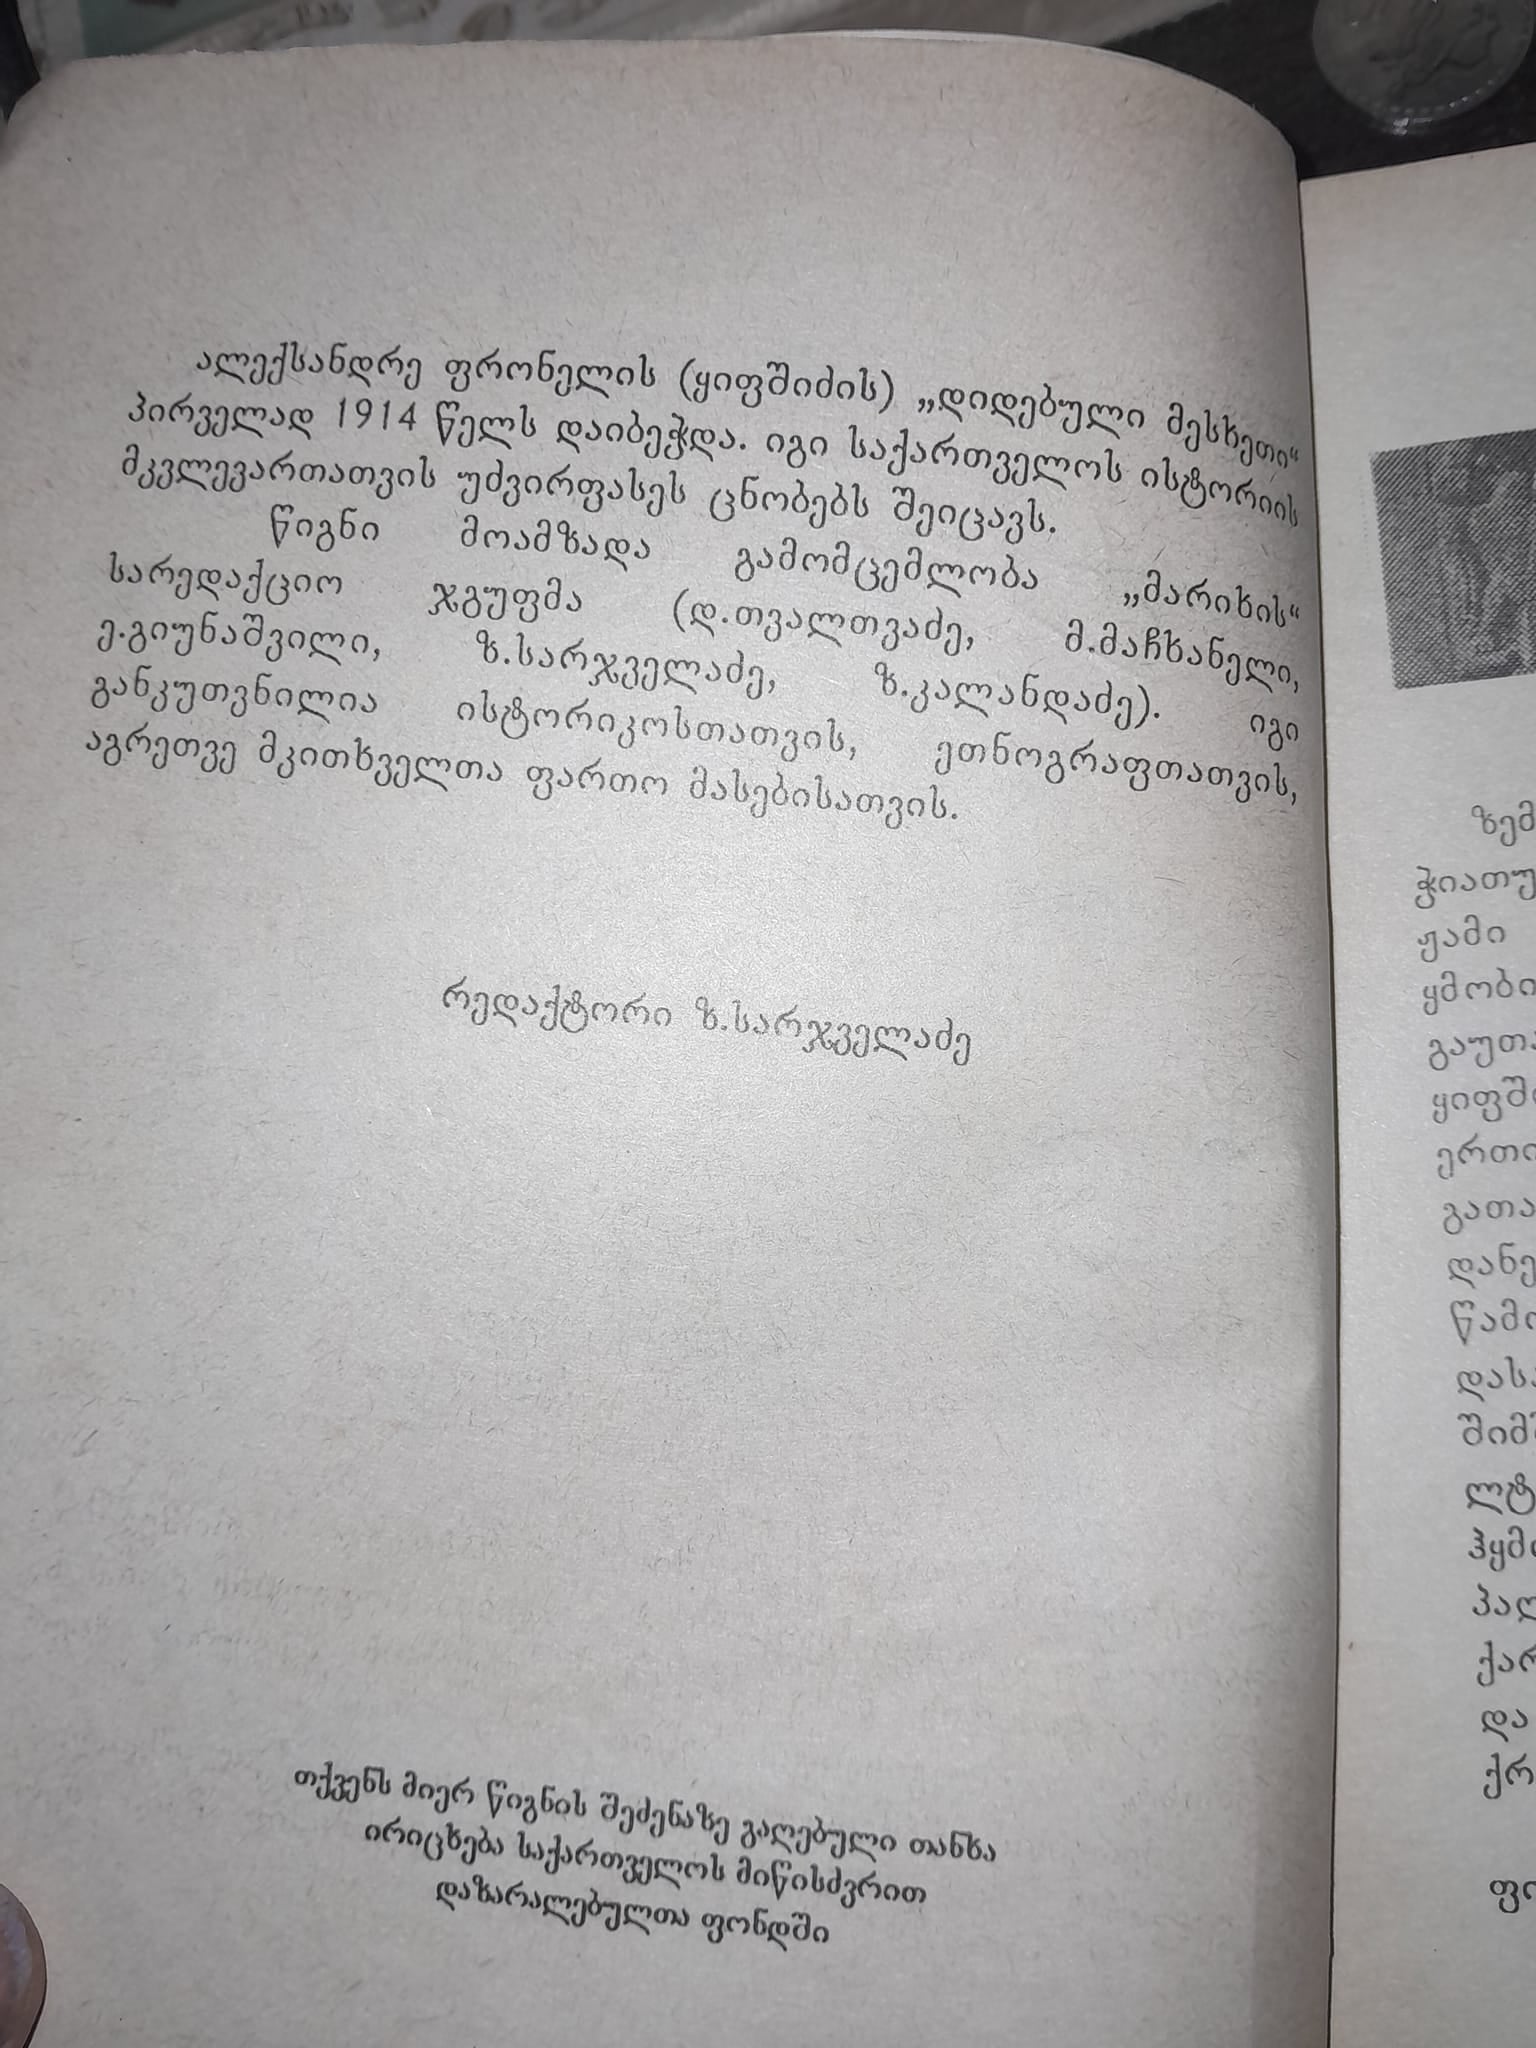 ალექსანდრე ფრონელის (ყიფშიძის) „დიდებული მესხეთი“
პირველად 1914 წელს დაიბეჭდა. იგი საქართველოს ისტორიის
მკვლევართათვის უძვირფასეს ცნობებს შეიცავს.
წიგნი მოამზადა გამომცემლობა „მარიხის“
სარედაქციო ჯგუფმა (დ.თვალთვაძე, მ.მაჩხანელი,
ე.გიუნაშვილი, ზ.სარჯველაძე, ზ.კალანდაძე). იგი
განკუთვნილია ისტორიკოსთათვის, ეთნოგრაფთათვის,
აგრეთვე მკითხველთა ფართო მასებისათვის.
რედაქტორი ზ.სარჯველაძე
თქვენს მიერ წიგნის შეძენაზე გაღებული თანხა
ირიცხება საქართველოს მიწისძვრით
დაზარალებულთა ფონდში
ზემ
ჭიათუ
ჟამი
ყმობი
გაუთა
ყიფში
ერთი
გათა
დანე
წამო
დასა
შიმშ
ლტ
ჰყმი
პალ
ქარ
და
ქრ
ფი